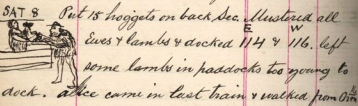 SAT 8 Put 18 hoggets on back Sec. Mustered all
E W
Ewes & lambs & docked 114 & 116. left
some lambs in paddocks too young to
dock. Alice came in last train & walked from